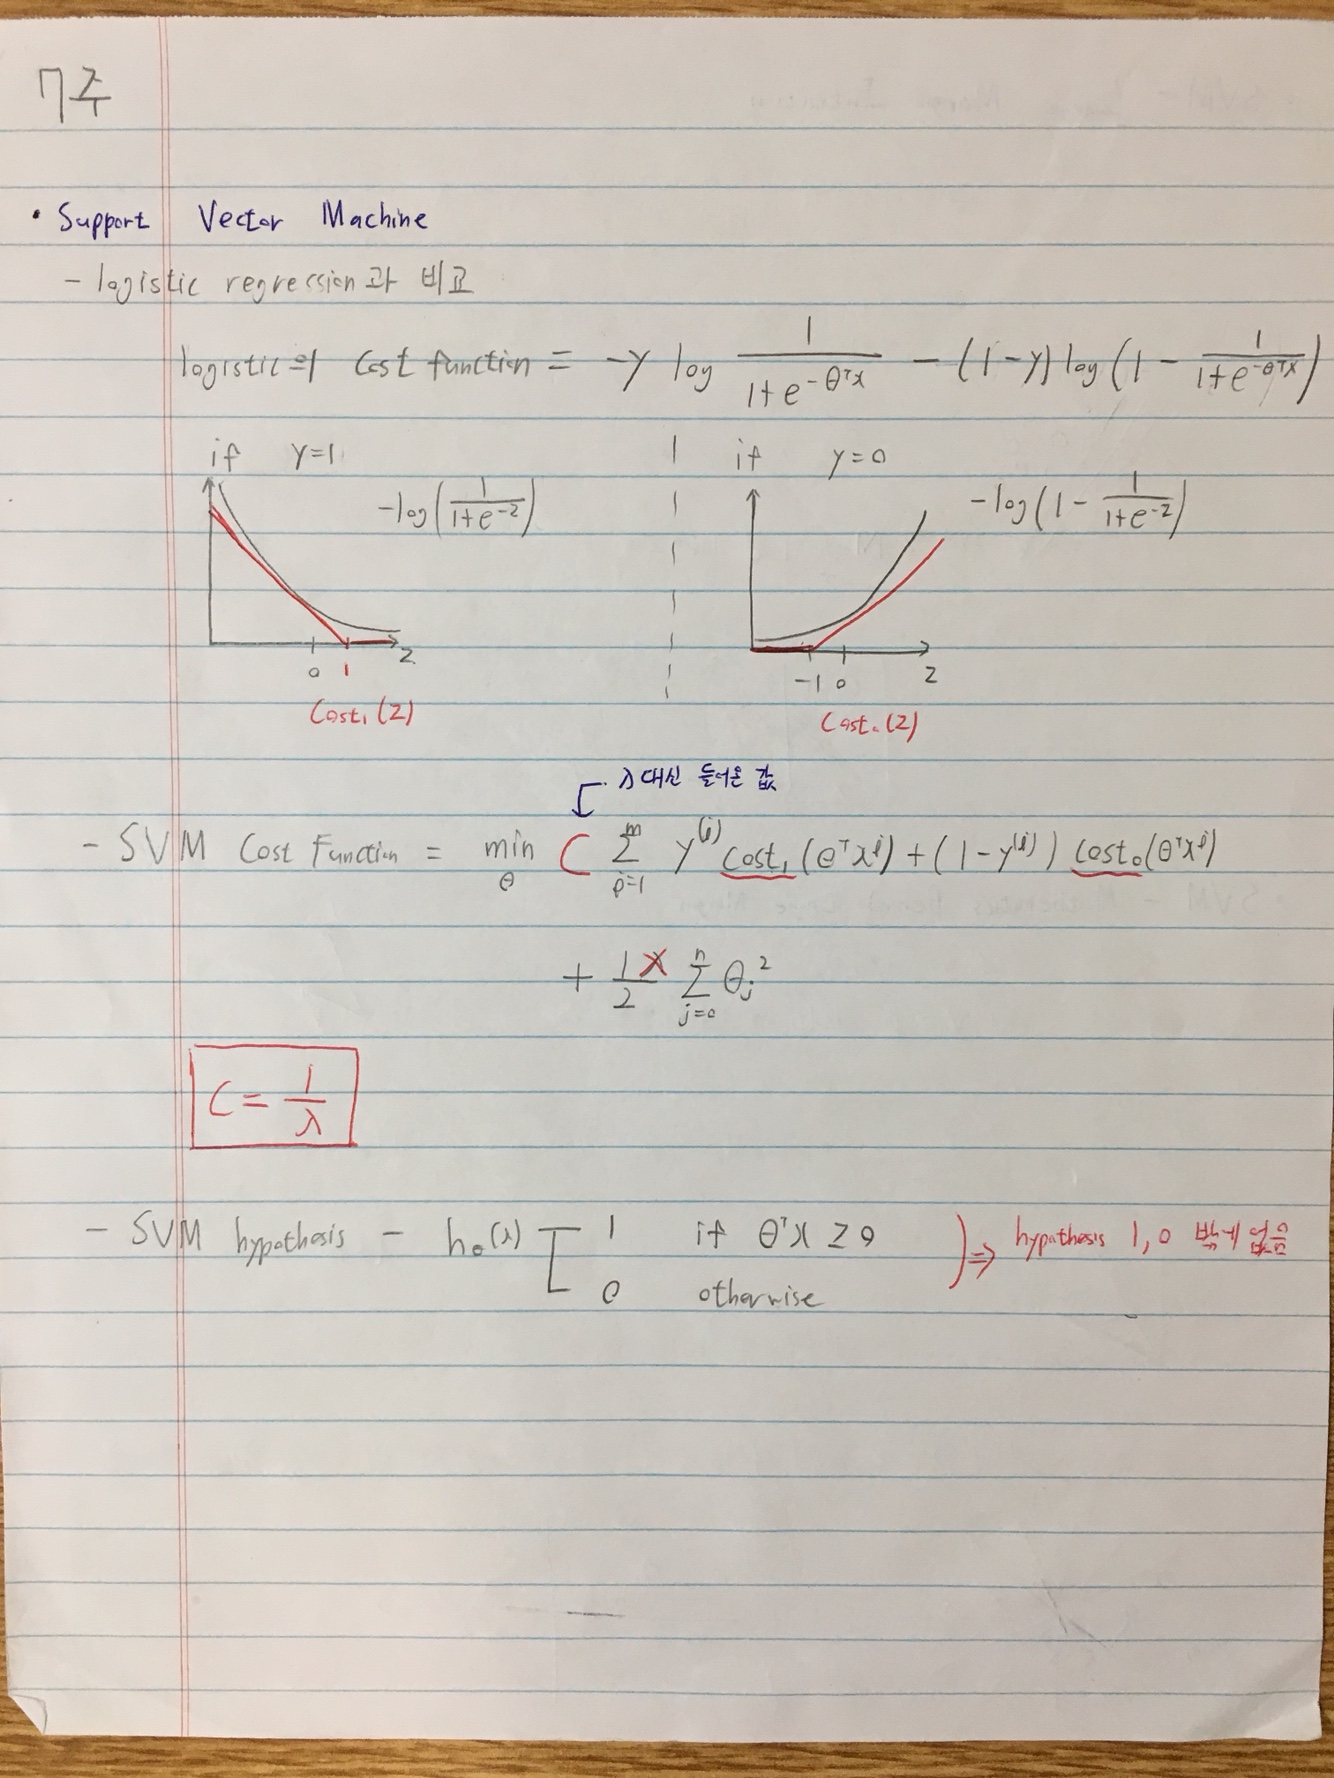 7주
• Support Vector Machine
- logistic regression과 비교
logistic의 Cost function = -y log 1/(1+e^-θᵀx) - (1-y) log(1 - 1/(1+e^-θᵀx))
if y=1 | if y=0
-log(1/(1+e^-z)) -log(1 - 1/(1+e^-z))
0 1 z -1 0 z
Cost₁(z) Cost₀(z)
λ대신 들어온 값
- SVM Cost Function = min θ C Σ i=1 m y⁽ⁱ⁾ cost₁(θᵀxⁱ) + (1-y⁽ⁱ⁾) cost₀(θᵀxⁱ)
+ 1λ/2 Σ j=0 n θⱼ²
C = 1/λ
- SVM hypothesis - hθ(x) [ 1 if θᵀx ≥ 0 ) ⇒ hypothesis 1, 0 밖에 없음
0 otherwise